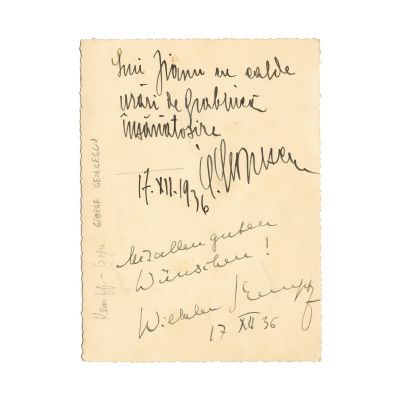 Lui Jianu cu calde
urări de grabnică
însănătoșire
17.XII.1936
Mit allen guten
Wünschen!
Wilhelm Kempff
17 XII 36
Kempff -
GEORGE GEORGESCU